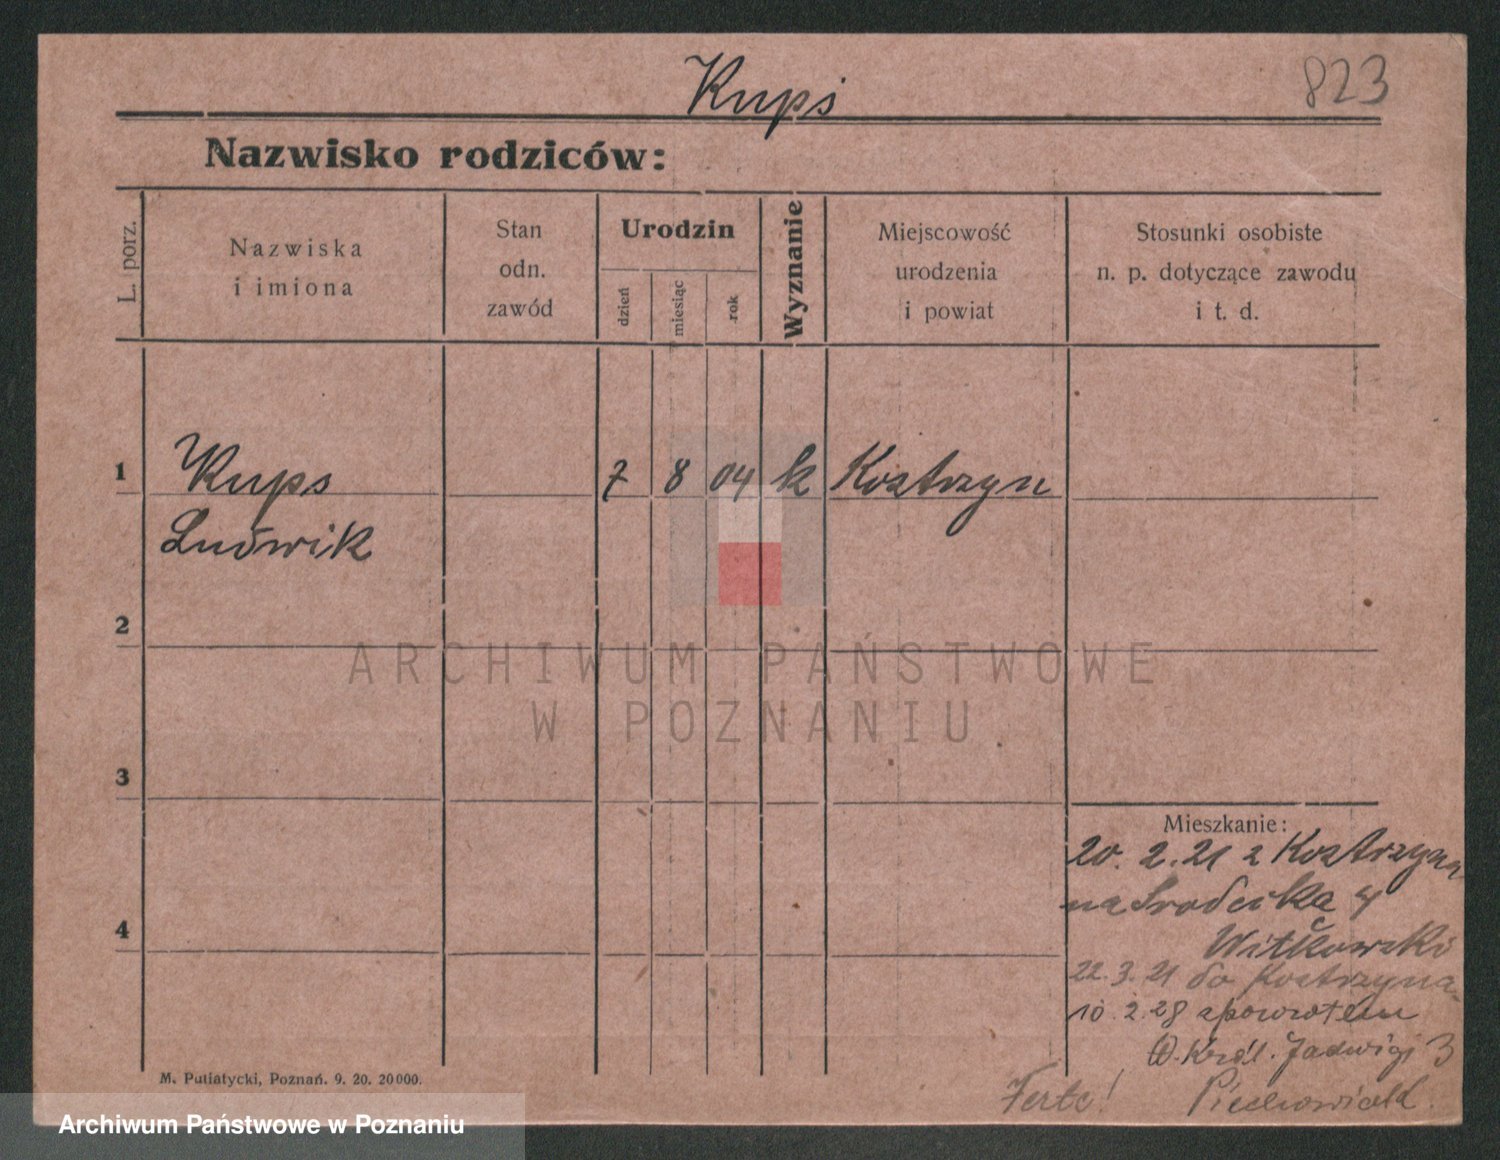 Kups
823
Nazwisko rodziców:
L. porz.
Nazwiska
i imiona
Stan
odn.
zawód
Urodzin
dzień
miesiąc
rok
Wyznanie
Miejscowość
urodzenia
i powiat
Stosunki osobiste
n. p. dotyczące zawodu
i t. d.
1 Kups 7 8 04 k Kostrzyn
Ludwik
2
3
4
Mieszkanie:
20. 2. 21 z Kostrzyna
na Środecka 4
Witkowski
22. 3. 21 do Kostrzyna
10. 2. 28 spowrotem
Król. Jadwigi 3
M. Putiatycki, Poznań. 9. 20. 20000.
ARCHIWUM PAŃSTWOWE
W POZNANIU
Archiwum Państwowe w Poznaniu